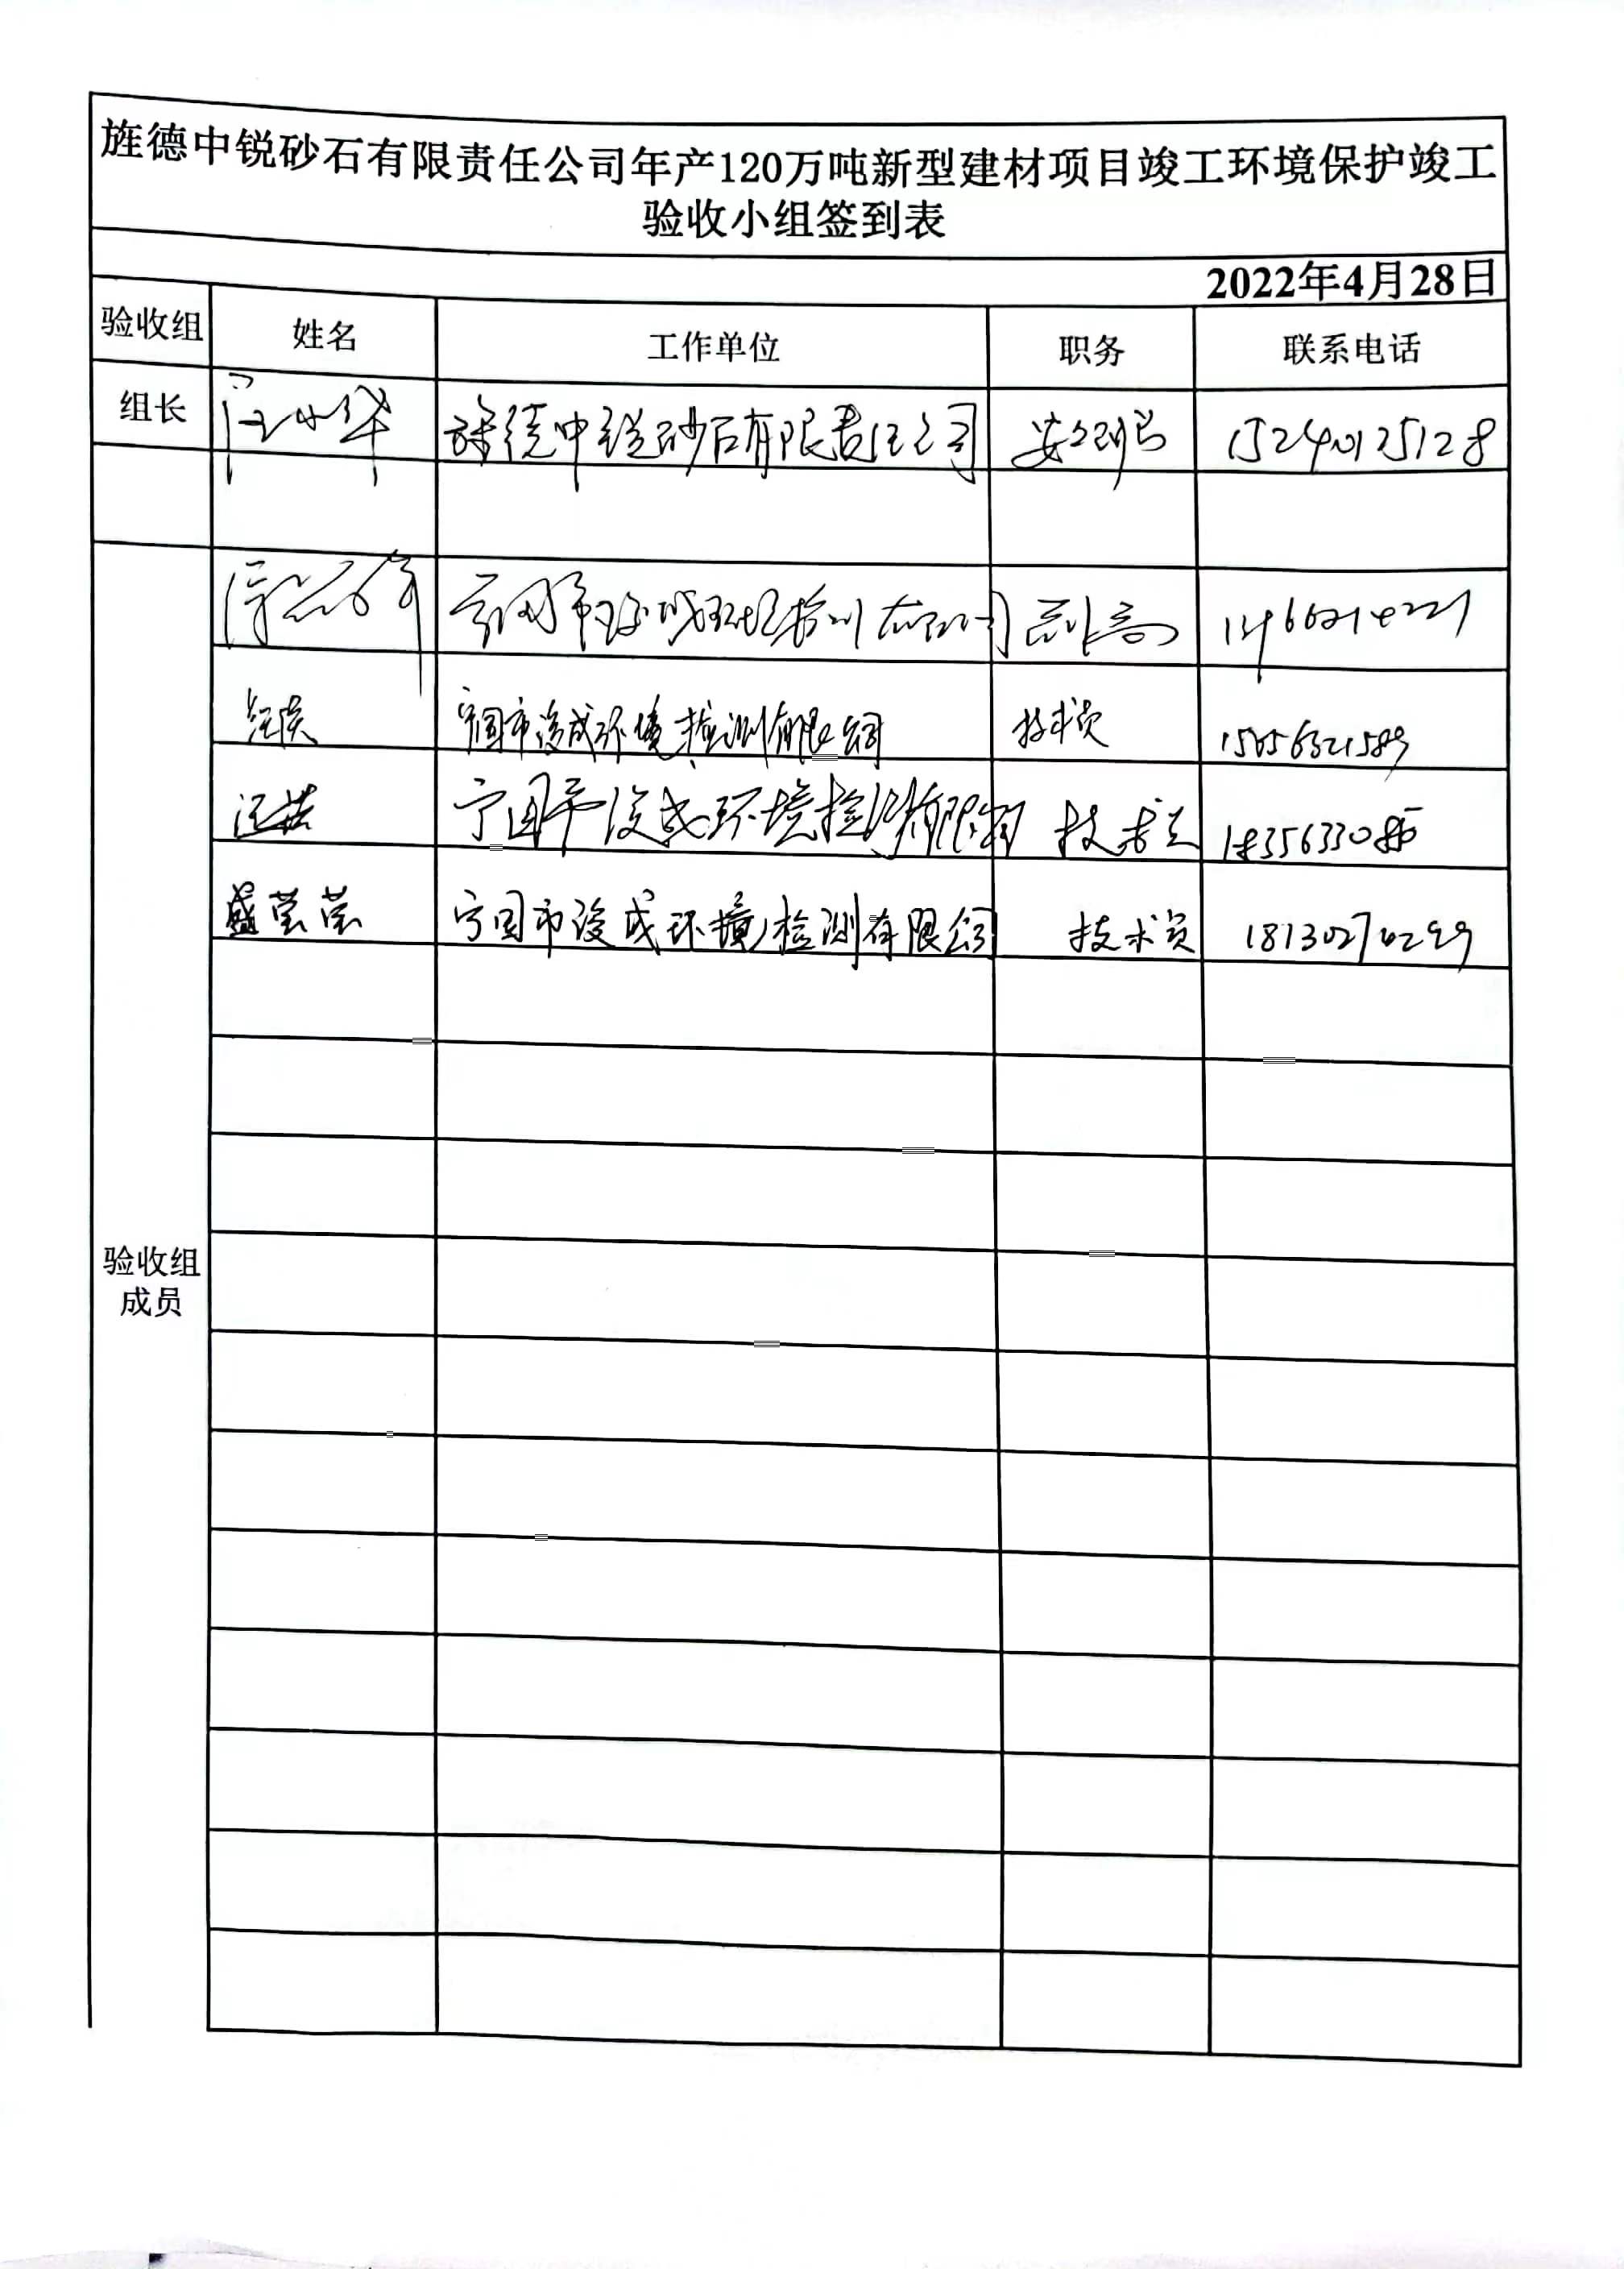 旌德中锐砂石有限责任公司年产120万吨新型建材项目竣工环境保护竣工
验收小组签到表
2022年4月28日
验收组 姓名 工作单位 职务 联系电话
组长 旌德中锐砂石有限责任公司 15240125128
宁国市浚成环境检测有限公司 副高
宁国市浚成环境检测有限公司 技术员
汪洪 宁国市浚成环境检测有限公司 技术员
盛莹莹 宁国市浚成环境检测有限公司 技术员 18130270299
验收组
成员